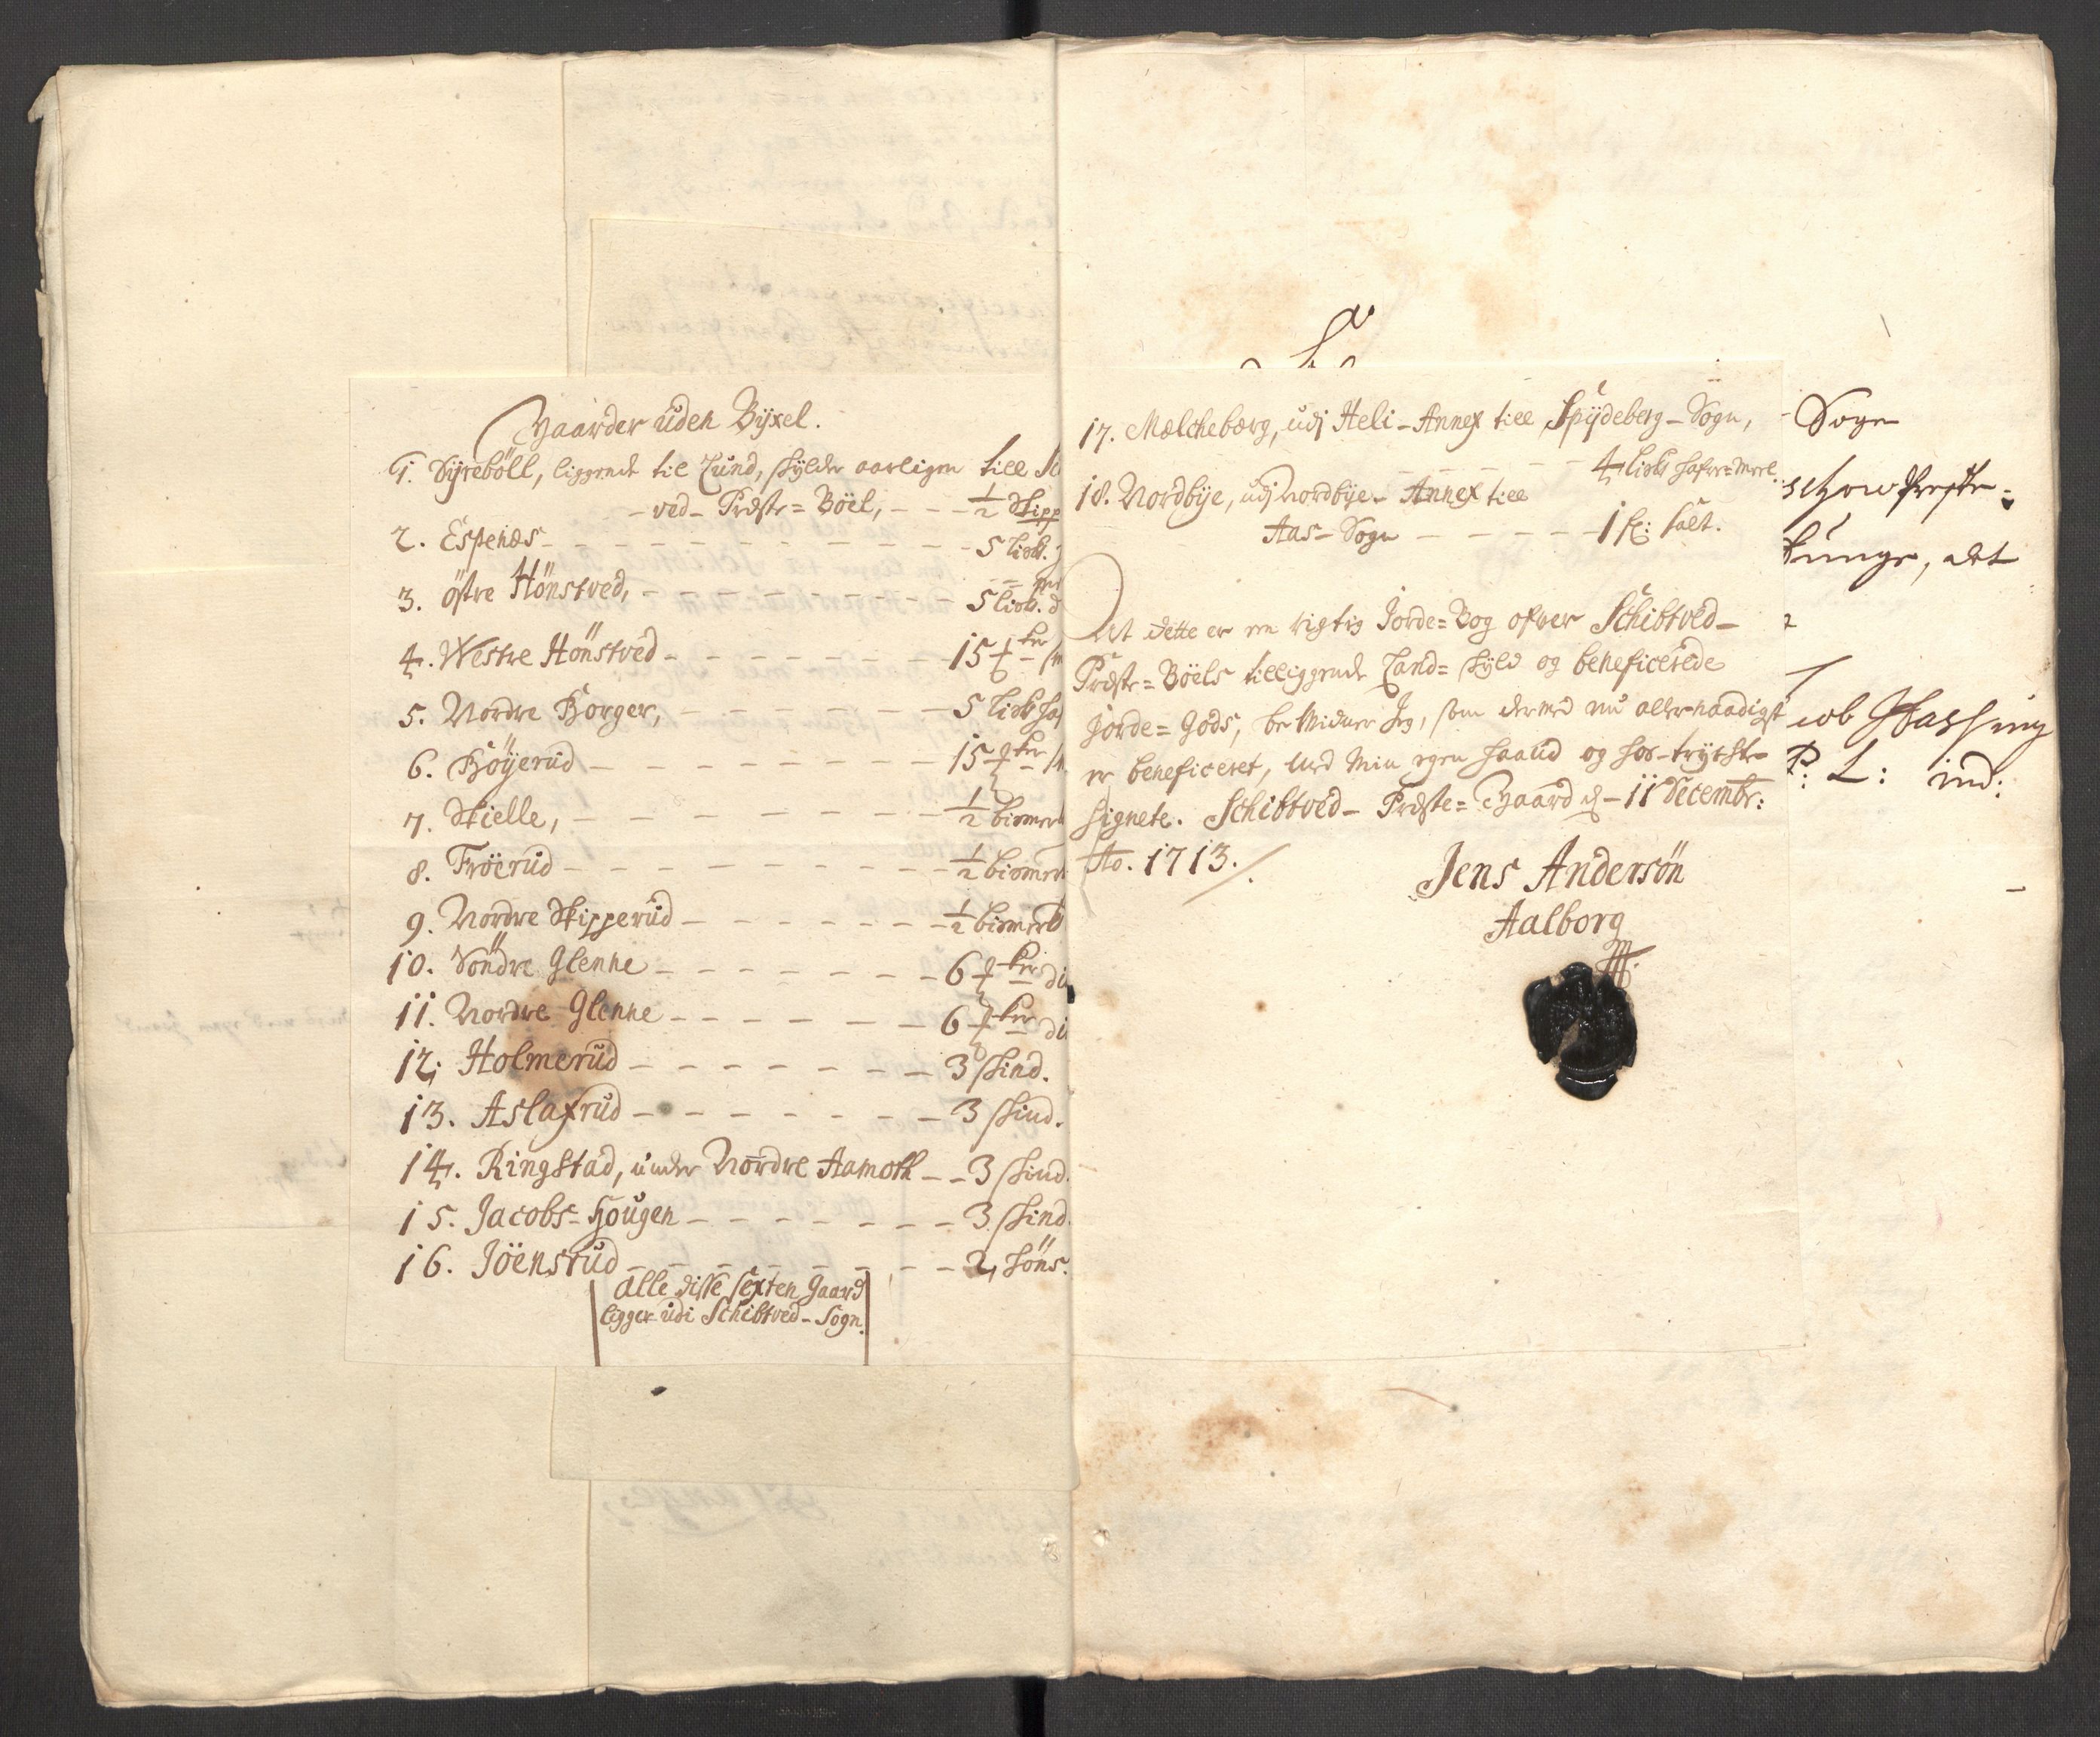 Gaarder uden Bÿxel.
1. Sÿreböll, liggende til Lund, skÿlder aarligen till Sc
- ved - Præste = Böel, - - - ½ Skipp
2. Espenæs - - - - - - - - - - 5 lisb.
3. östre Hönstved, - - - - - - - - 5 lisb.
4. Westre Hönstved - - - - - - - - 15
5. Nordre Borger, - - - - - - - 5 lisb
6. Böÿerud - - - - - - - - 15
7. Skielle, - - - - - - - - ½ bismerb
8. Fröerud - - - - - - - - ½ bismerb
9. Nordre Skipperud - - - - - - ½ bismerb
10. Söndre Glenne - - - - - - - 6
11. Nordre Glenne - - - - - - - 6
12. Holmerud - - - - - - - 3 skind.
13. Aslafrud - - - - - - - 3 skind.
14. Ringstad, under Nordre Aamoth - - 3 skind.
15. Jacobs - Hougen - - - - - - - 3 skind.
16. Jöensrud - - - - - - - 2 höns.
Alle disse sexten Gaard
ligger udi Schibtved - Sogn.
17. Mælcheberg, udj Heli - Annex till Spÿdeberg - Sogn,
- - - - - - 4 lisb hafre = meel.
18. Nordbÿe, udj Nordbÿe - Annex till
Aas - Sogn - - - - - 1 salt.
At dette er en rigtig Jorde = Bog ofver Schibtved -
Præste = Böels tilliggende Land = skÿld og beneficerede
Jorde = Gods, be Widner Jeg, som dermed nu allernaadigst
er beneficeret, med Min egen Haand og hos - trÿchte
Signete. Schibtved - Præste = Gaard d - 11 Decembr:
Ao. 1713.
Jens Andersön
Aalborg
Sogn
det
P: L: ind: